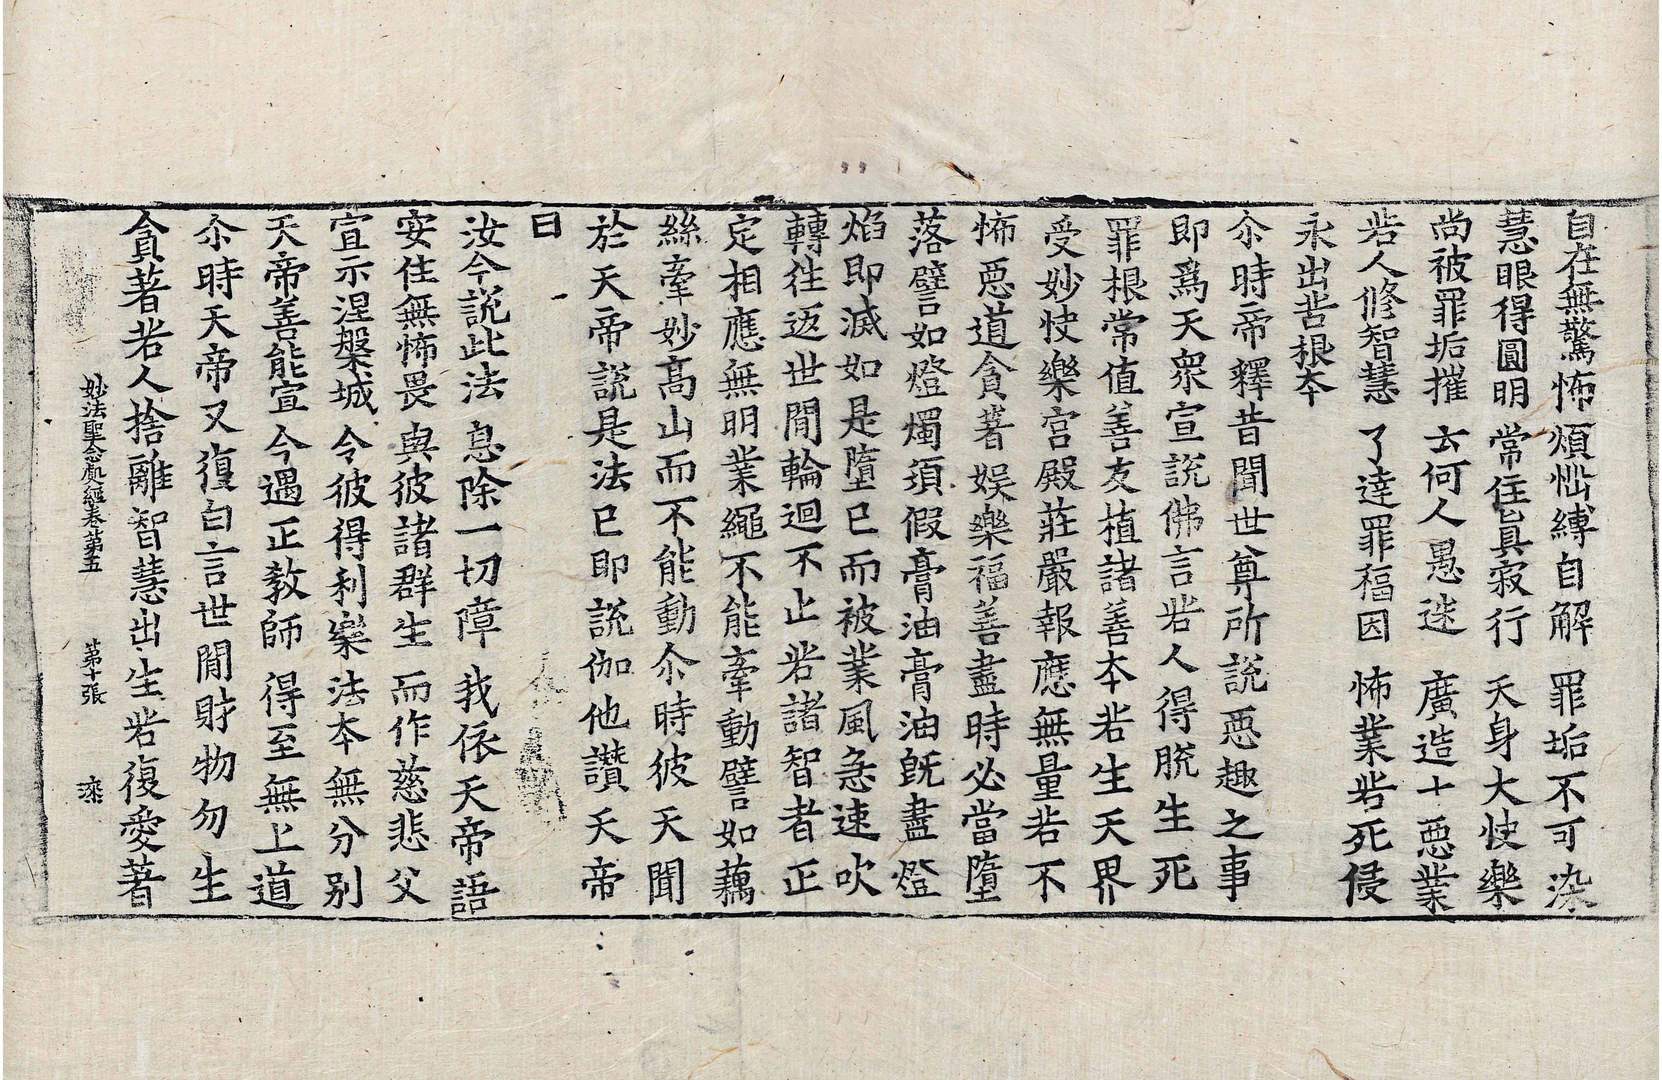 自在無驚怖 煩惱縛自解 罪垢不可染
慧眼得圓明 常住真寂行 天身大快樂
尚被罪垢摧 云何人愚迷 廣造十惡業
若人修智慧 了達罪福因 怖業若死侵
永出苦根本
尒時帝釋昔聞世尊所說惡趣之事
即爲天衆宣說佛言若人得脫生死
罪根常值善友植諸善本若生天界
受妙快樂宮殿莊嚴報應無量若不
怖惡道貪著娛樂福善盡時必當墮
落譬如燈燭須假膏油膏油旣盡燈
焰即滅如是墮已而被業風急速吹
轉往返世間輪迴不止若諸智者正
定相應無明業繩不能牽動譬如藕
絲牽妙高山而不能動尒時彼天聞
於天帝說是法已即說伽他讚天帝
曰
汝今說此法 息除一切障 我依天帝語
安住無怖畏 與彼諸群生 而作慈悲父
宣示涅槃城 令彼得利樂 法本無分別
天帝善能宣 今遇正教師 得至無上道
尒時天帝又復白言世間財物勿生
貪著若人捨離智慧出生若復愛著
妙法聖念處經卷第五 第十張 漆